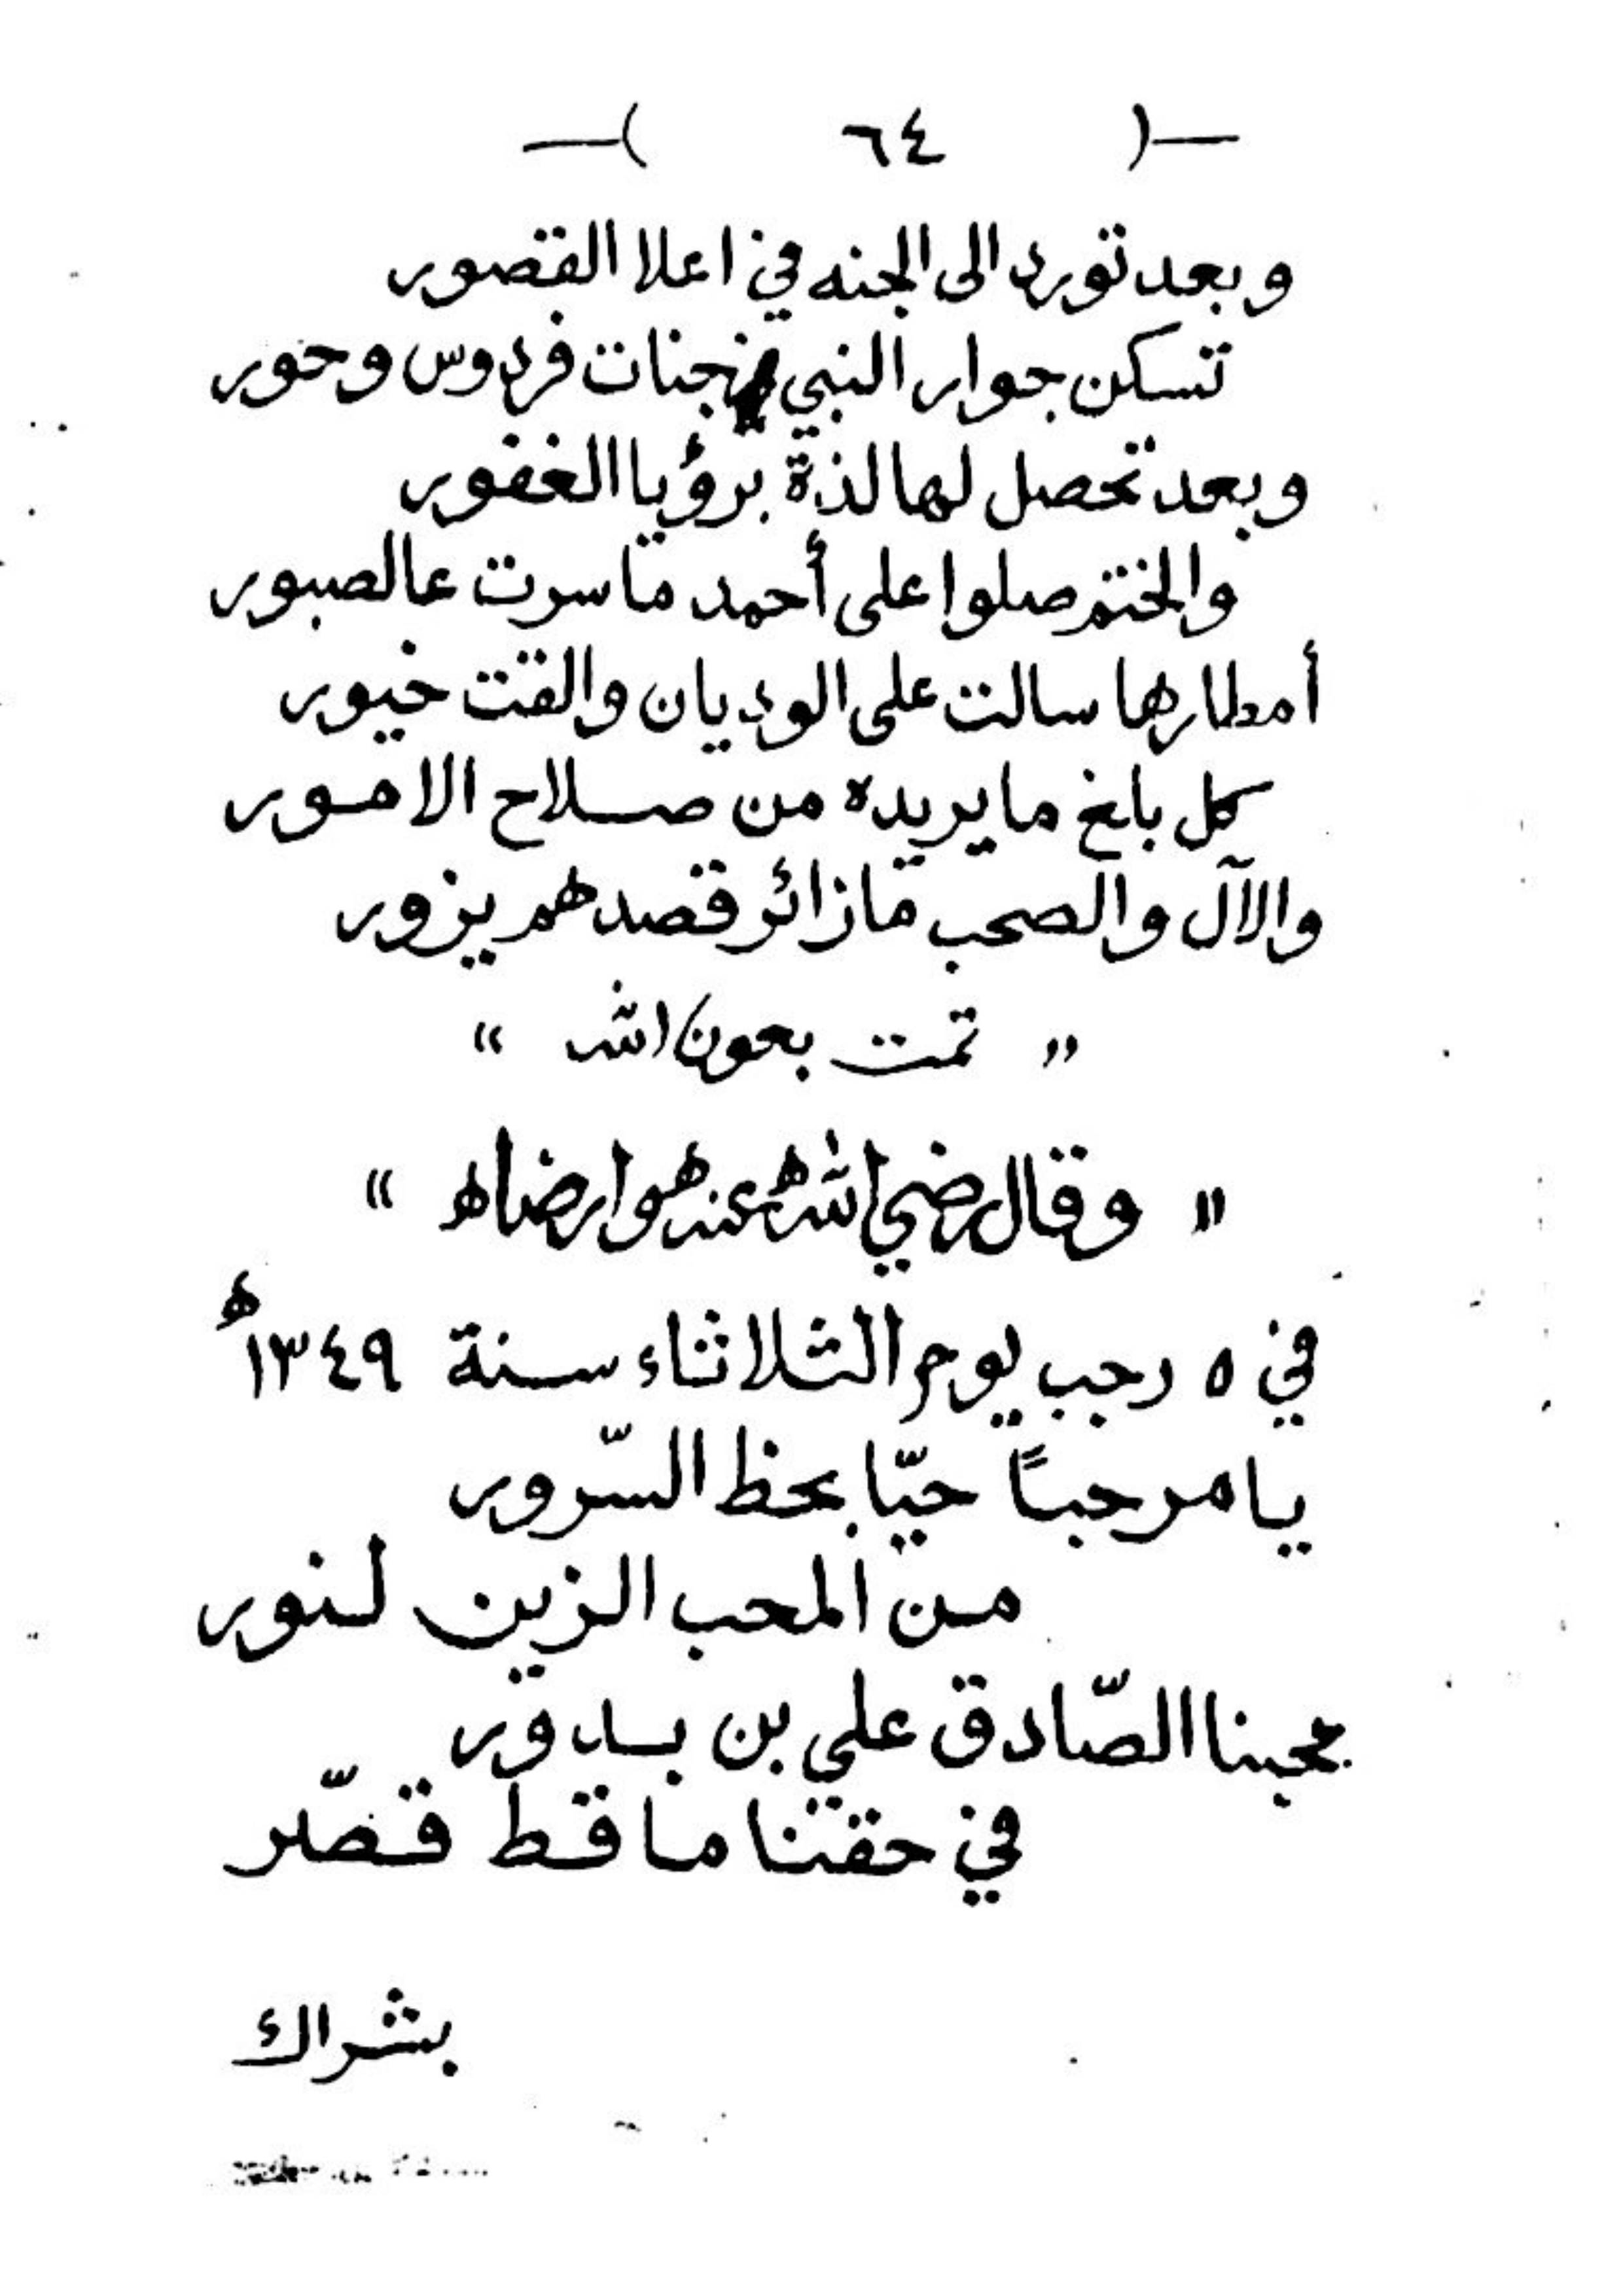 —( ٦٤ )—
وبعد تورد الى الجنه في اعلا القصور
تسكن جوار النبي جنات فردوس وحور
وبعد تحصل لها لذة برؤيا الغفور
والختم صلوا على أحمد ما سرت عالصبور
أمطارها سالت على الوديان والقت خيور
كل بلغ ما يريده من صلاح الامور
والآل والصحب ما زائر قصدهم يزور
« تمت بعون الله »
« وقال رضي الله عنه وارضاه »
في ٥ رجب يوم الثلاثاء سنة ١٣٤٩ ه
يا مرحباً حيّا بحظ السّرور
من المحب الزين لنور
محبنا الصّادق علي بن بدور
في حقنا ما قط قصّر
بشراك